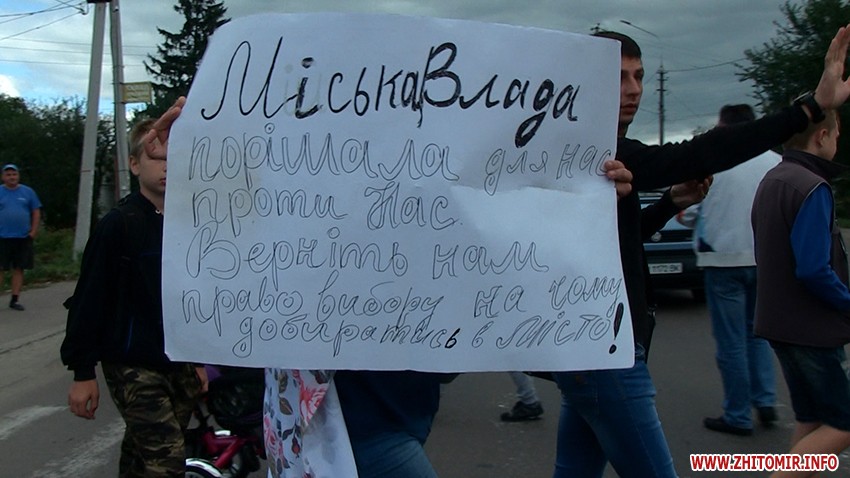 Міська Влада
порішала для нас
проти Нас.
Верніть нам
право вибору на чому
добиратись в місто!
WWW.ZHITOMIR.INFO